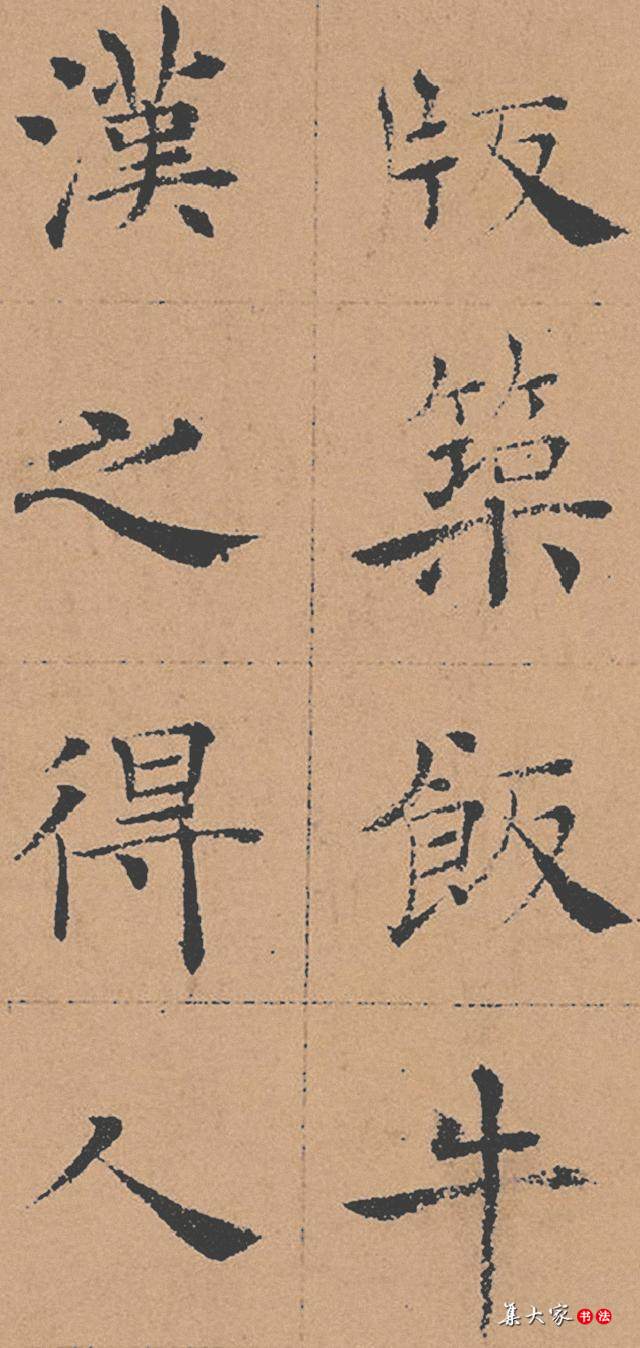 版築飯牛
漢之得人
集大家书法